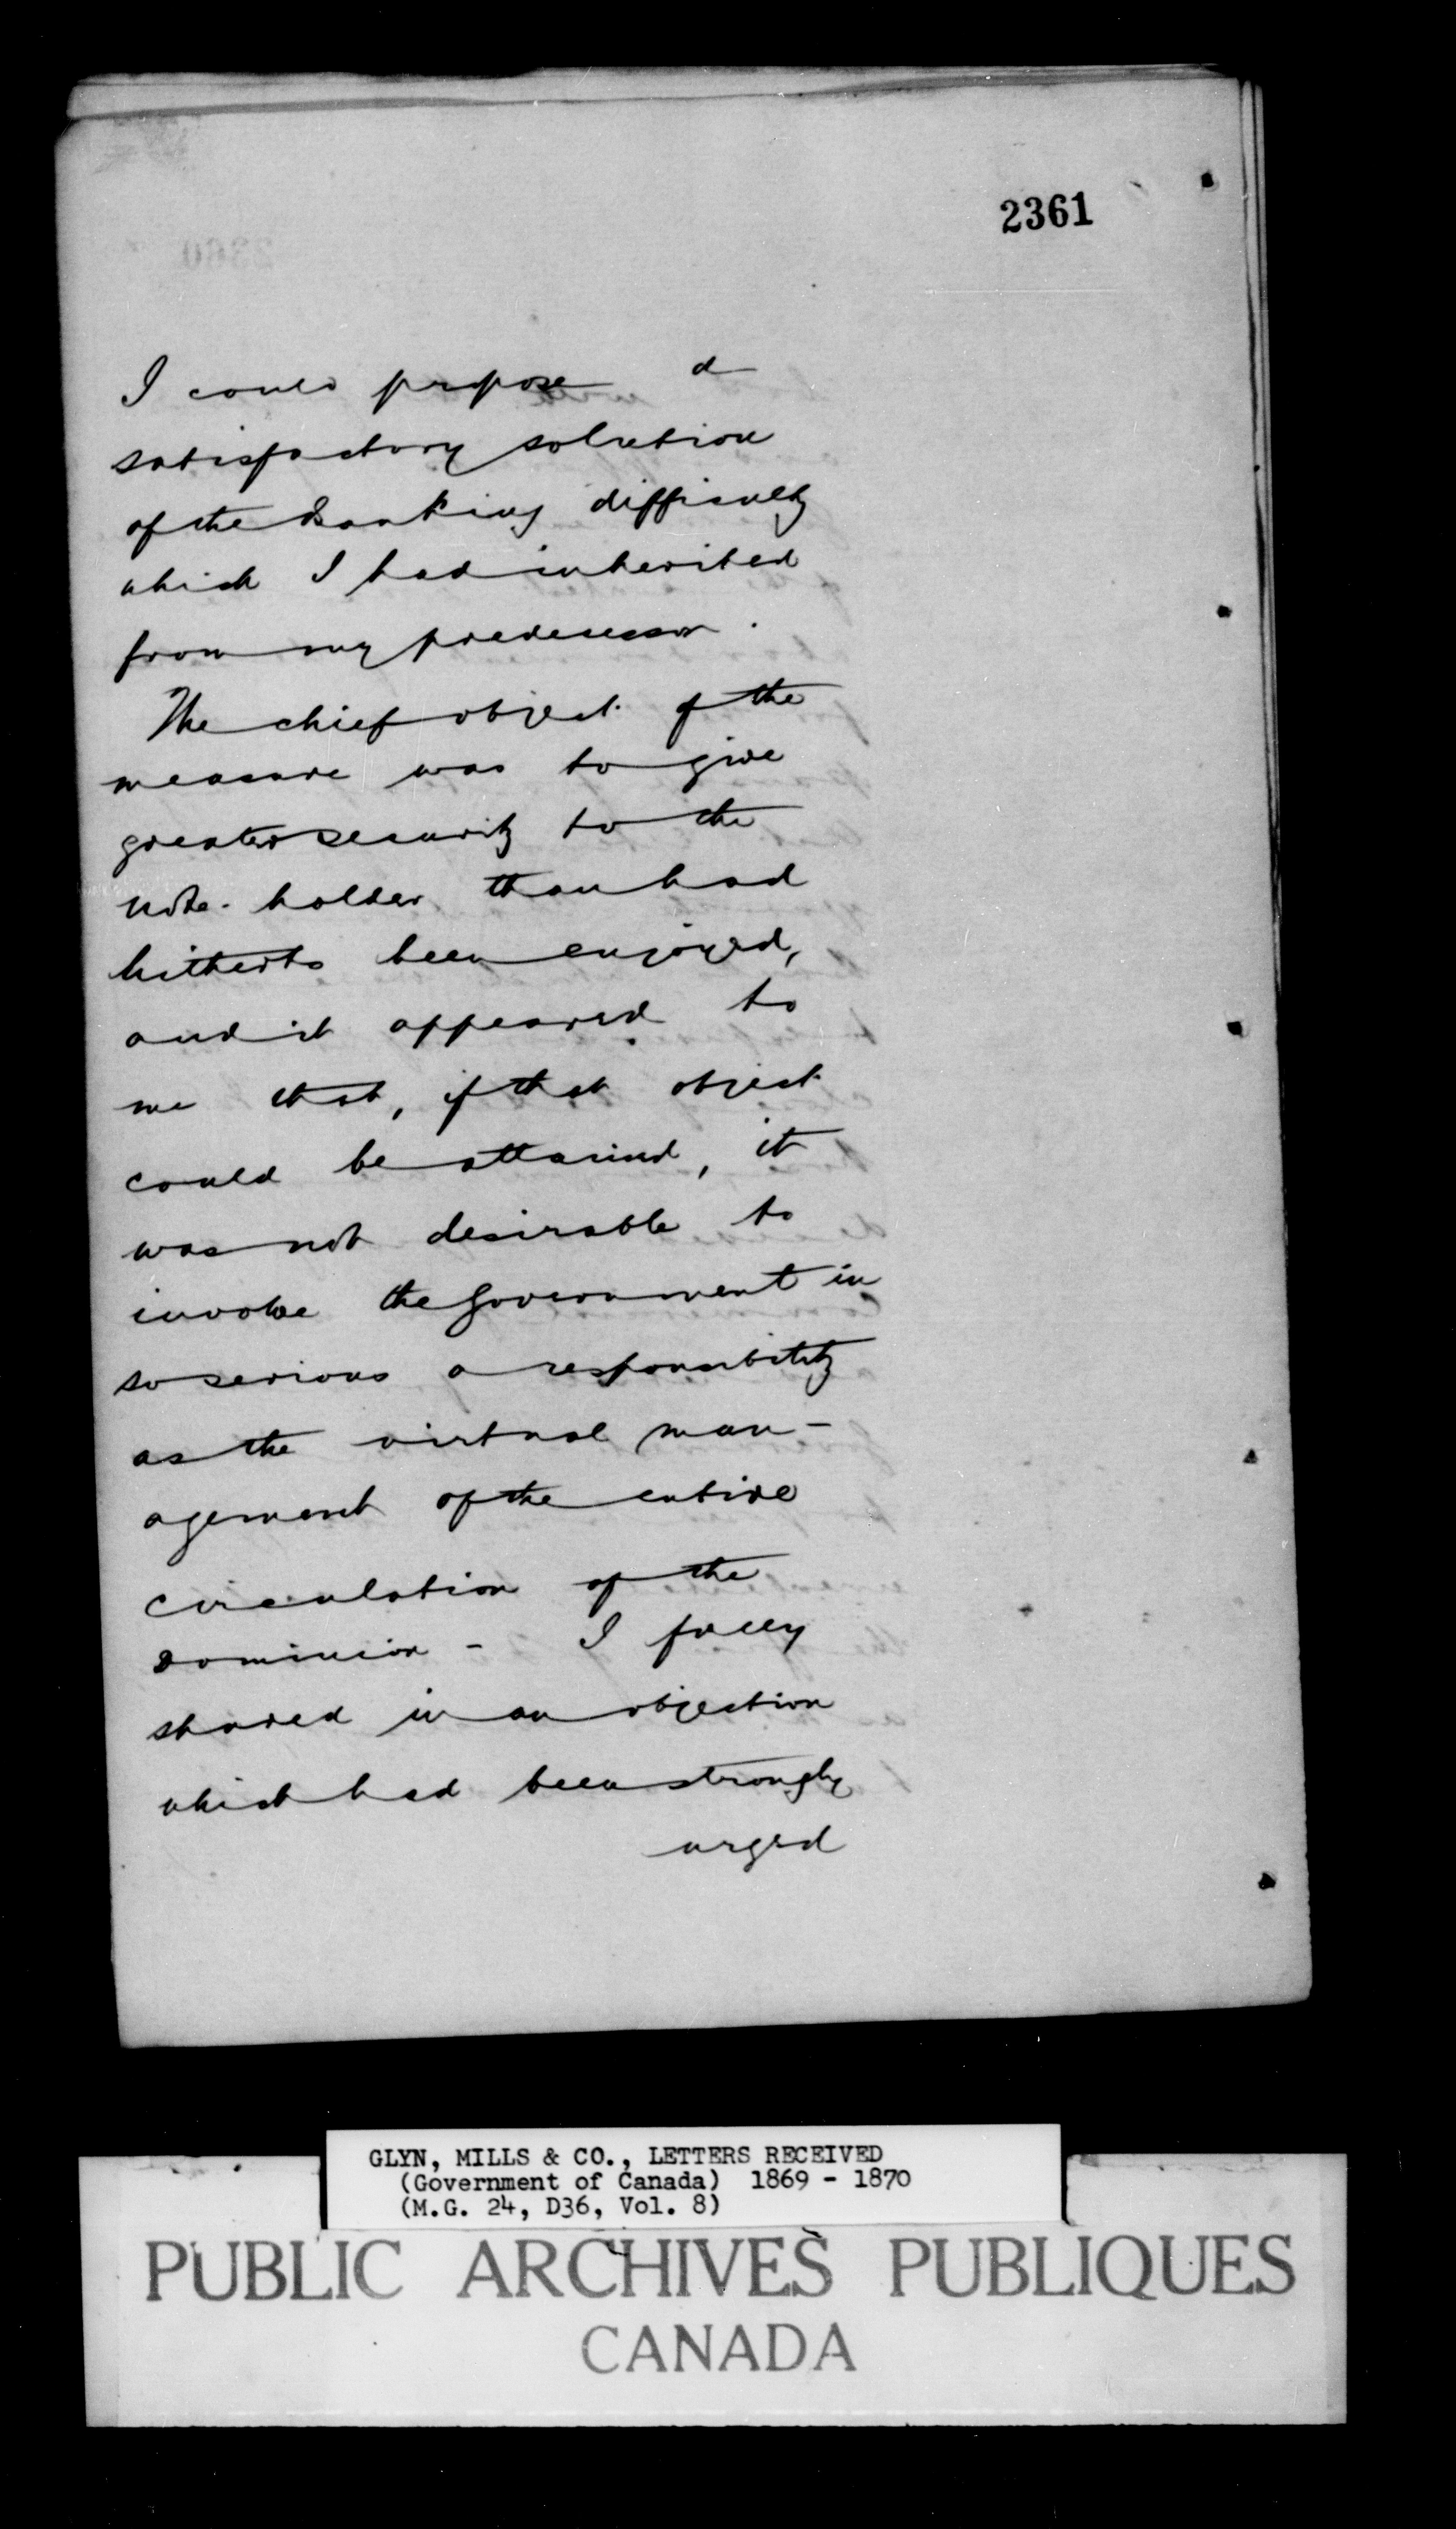 2361
I could propose a
satisfactory solution
of the Banking difficulty
which I had inherited
from my predecessor.
The chief object of the
measure was to give
greater security to the
note-holder than had
hitherto been enjoyed,
and it appeared to
me that, if that object
could be attained, it
was not desirable to
involve the Government in
so serious a responsibility
as the virtual man-
agement of the entire
circulation of the
Dominion - I fully
shared in an objection
which had been strongly
urged
GLYN, MILLS & CO., LETTERS RECEIVED
(Government of Canada) 1869 - 1870
(M.G. 24, D36, Vol. 8)
PUBLIC ARCHIVES PUBLIQUES
CANADA